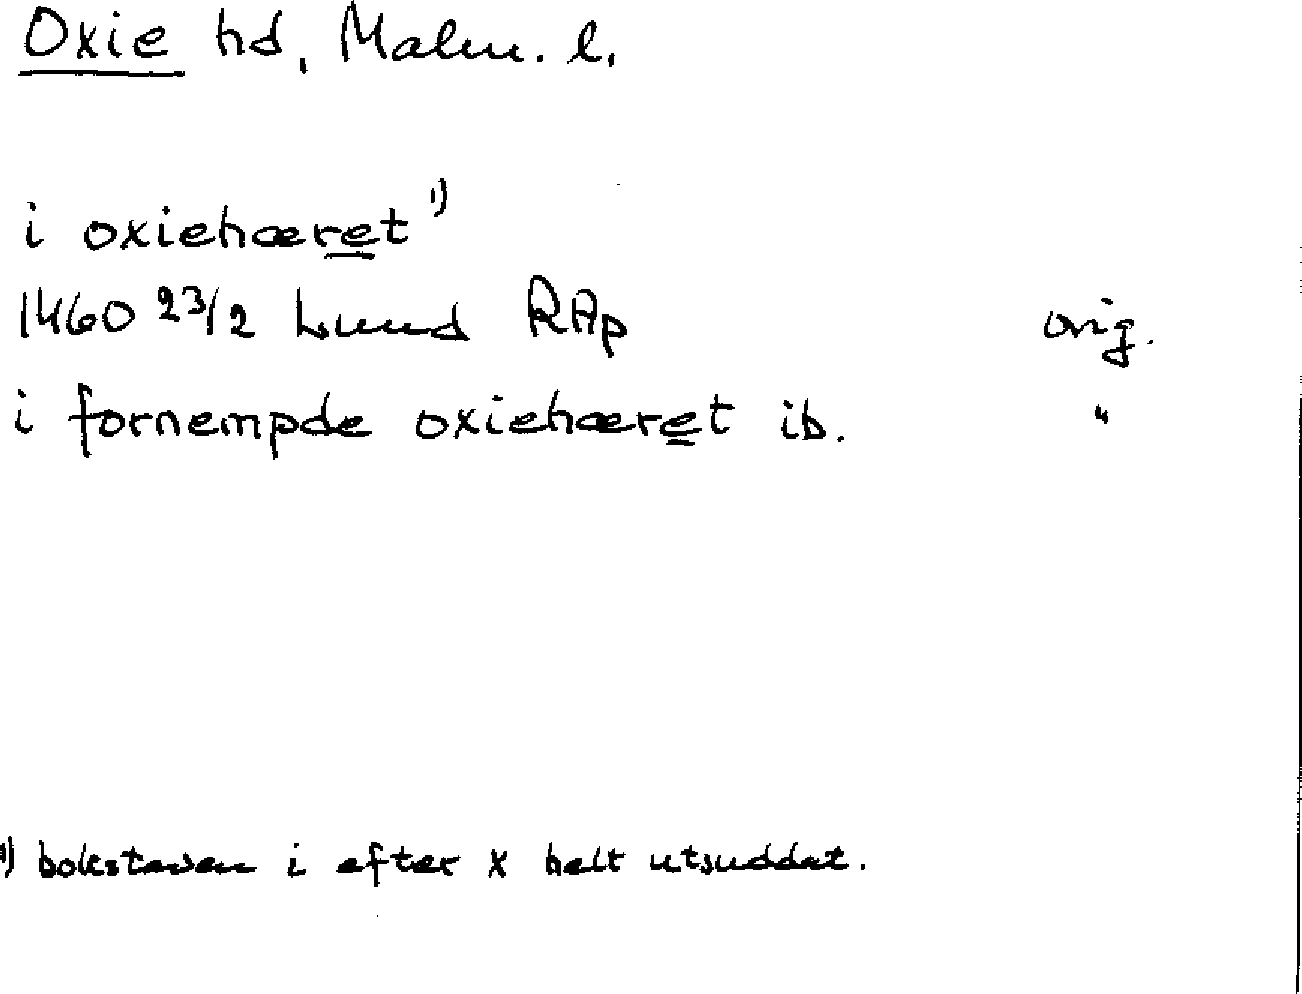 Oxie hd, Malm. l.
i oxiehæret 1)
1460 23/2 Lund RAp orig.
i fornempde oxiehæret ib. "
1) bokstaven i efter x helt utsuddat.